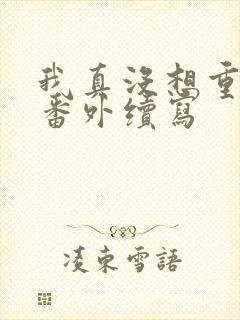 我真沒想重
番外續寫
凌東雪語